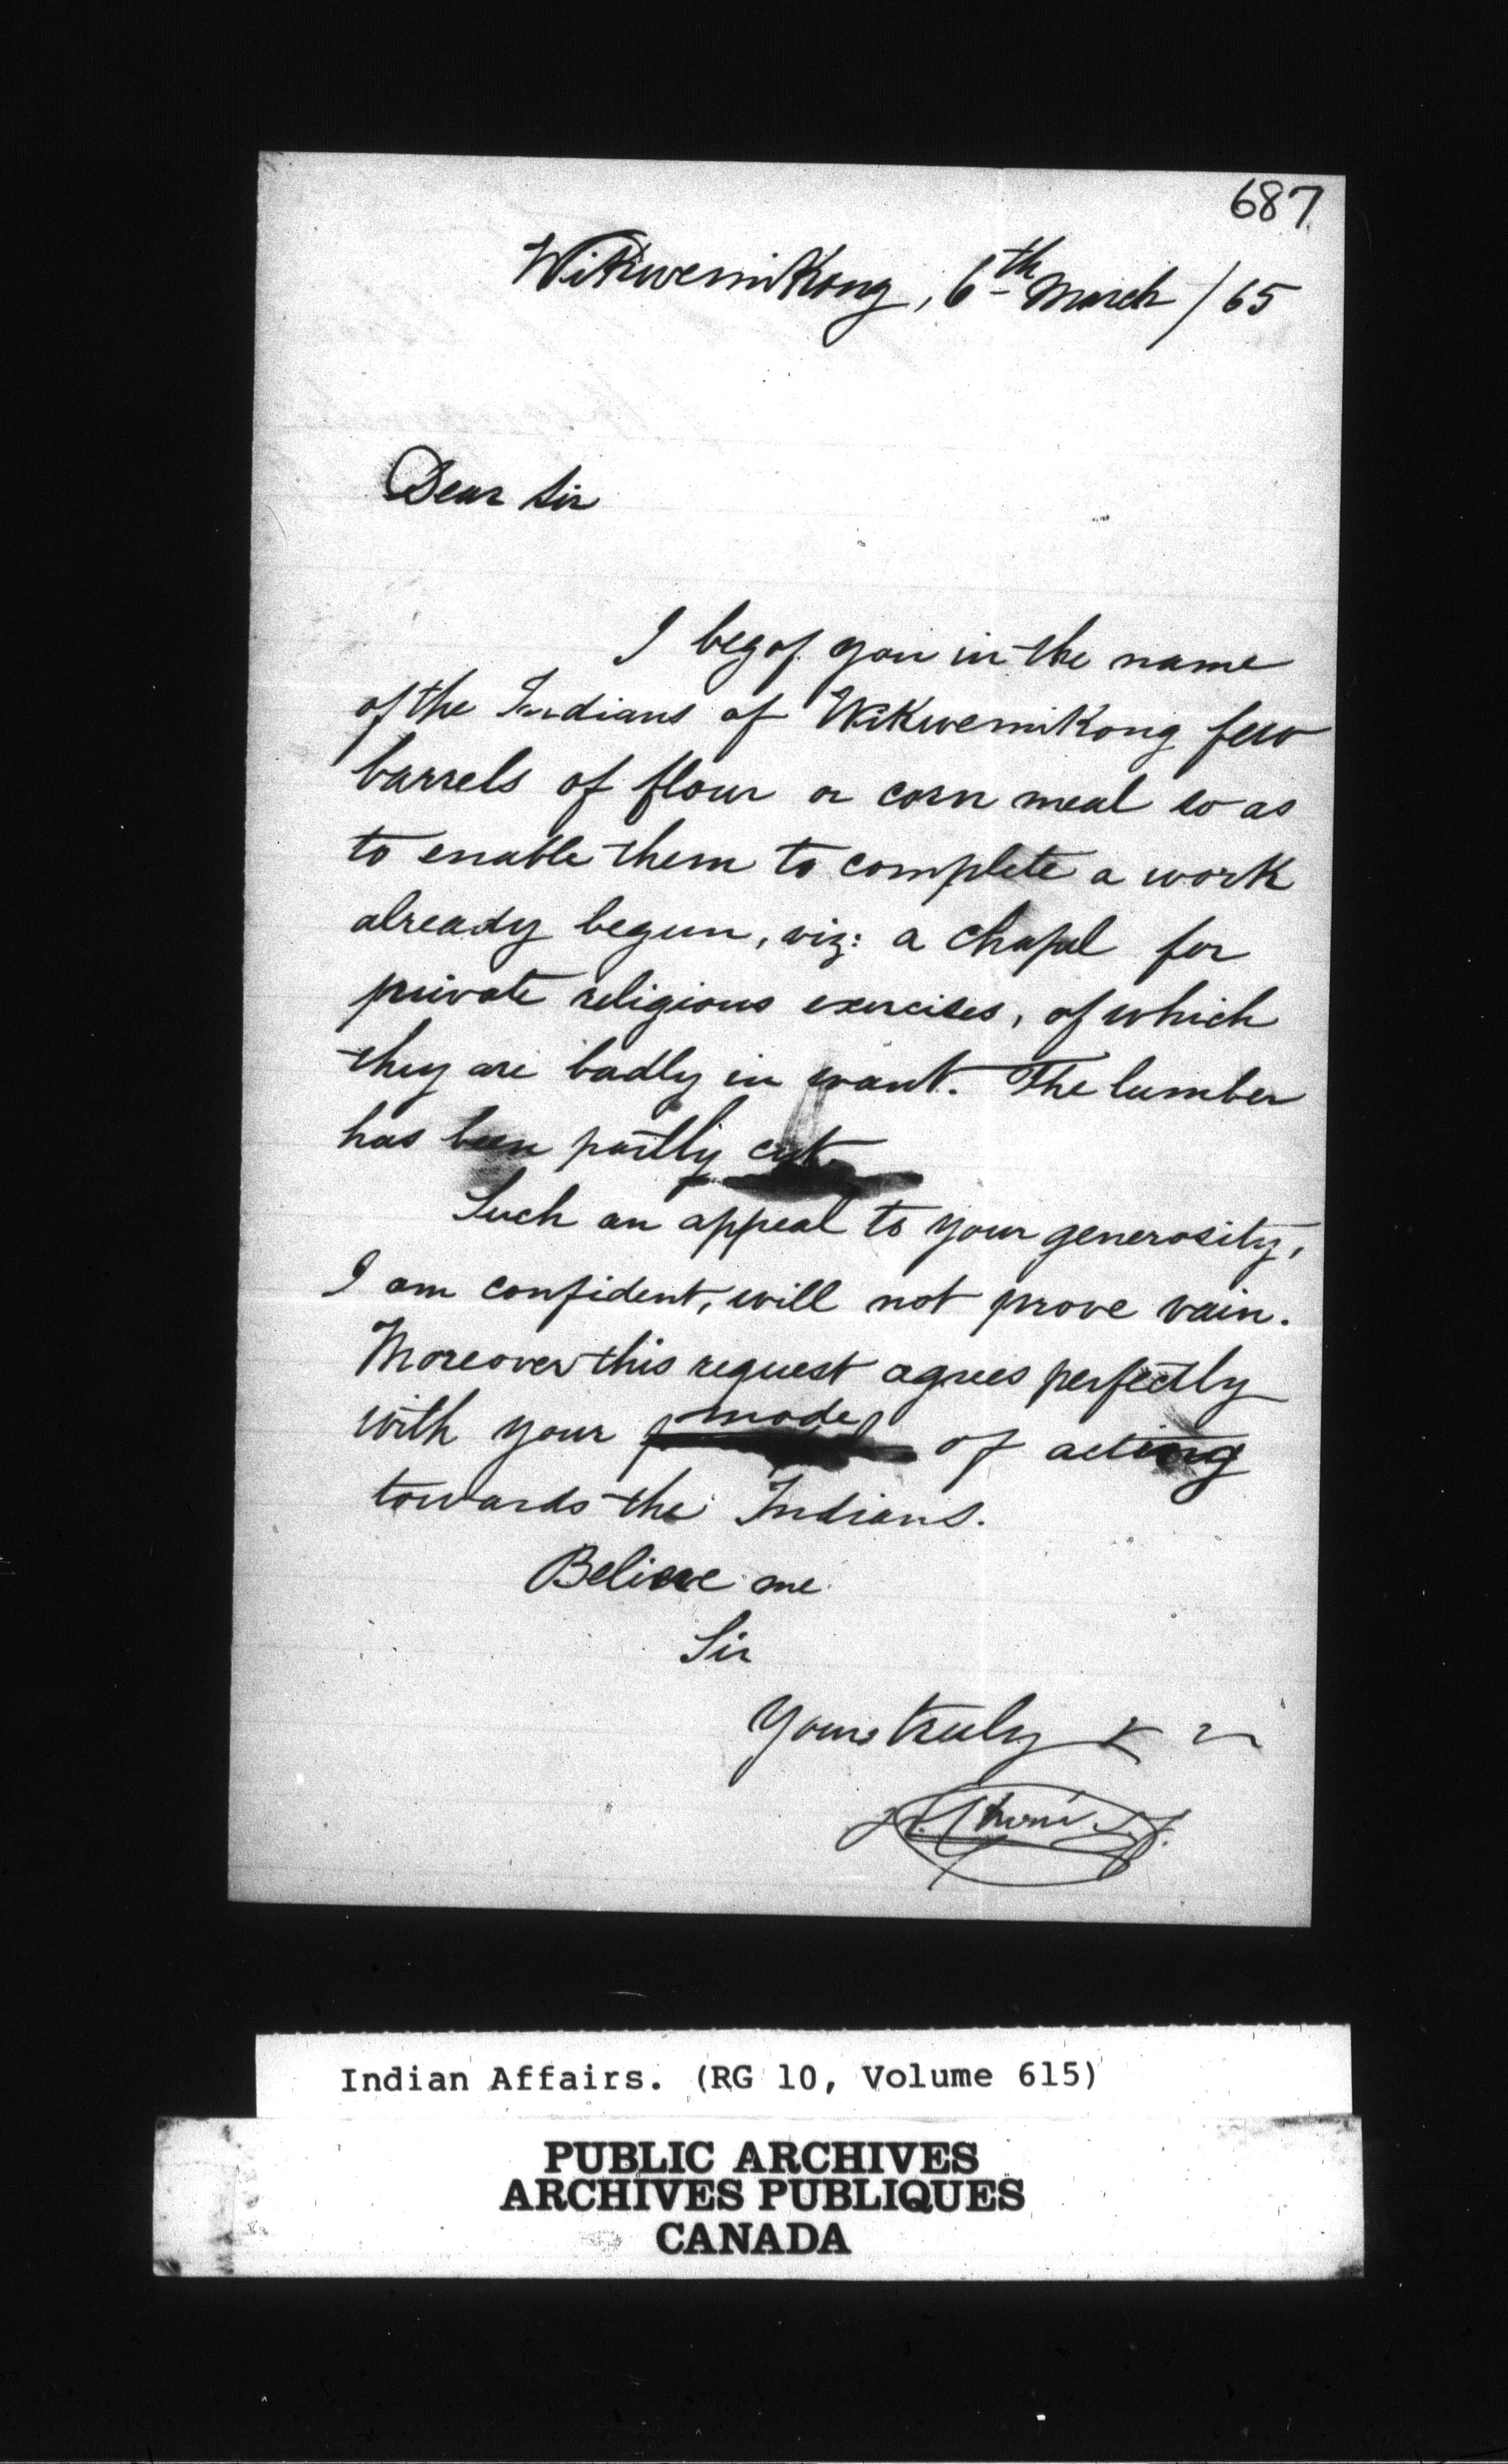 687
Wikwemikong, 6th March / 65
Dear Sir
I beg of you in the name
of the Indians of Wikwemikong few
barrels of flour or corn meal so as
to enable them to complete a work
already begun, viz: a chapel for
private religious exercises, of which
they are badly in want. The lumber
has been partly cut
Such an appeal to your generosity,
I am confident, will not prove vain.
Moreover this request agrees perfectly
with your mode of acting
towards the Indians.
Believe me
Sir
Yours truly
S.J.
Indian Affairs. (RG 10, Volume 615)
PUBLIC ARCHIVES
ARCHIVES PUBLIQUES
CANADA